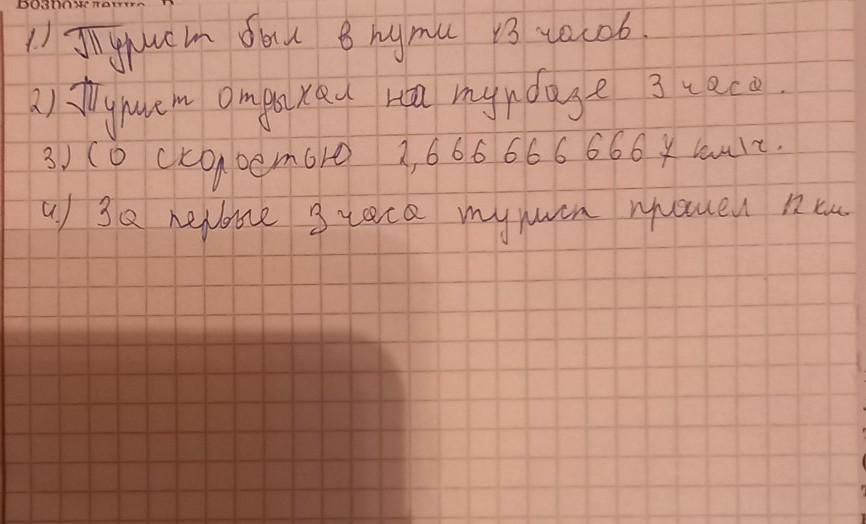 1.) Турист был в пути 13 часов.
2) Турист отдыхал на турбазе 3 часа.
3.) Со скоростью 2,6 666 666 6667 км/ч.
4.) За первые 3 часа турист прошел 12 км.